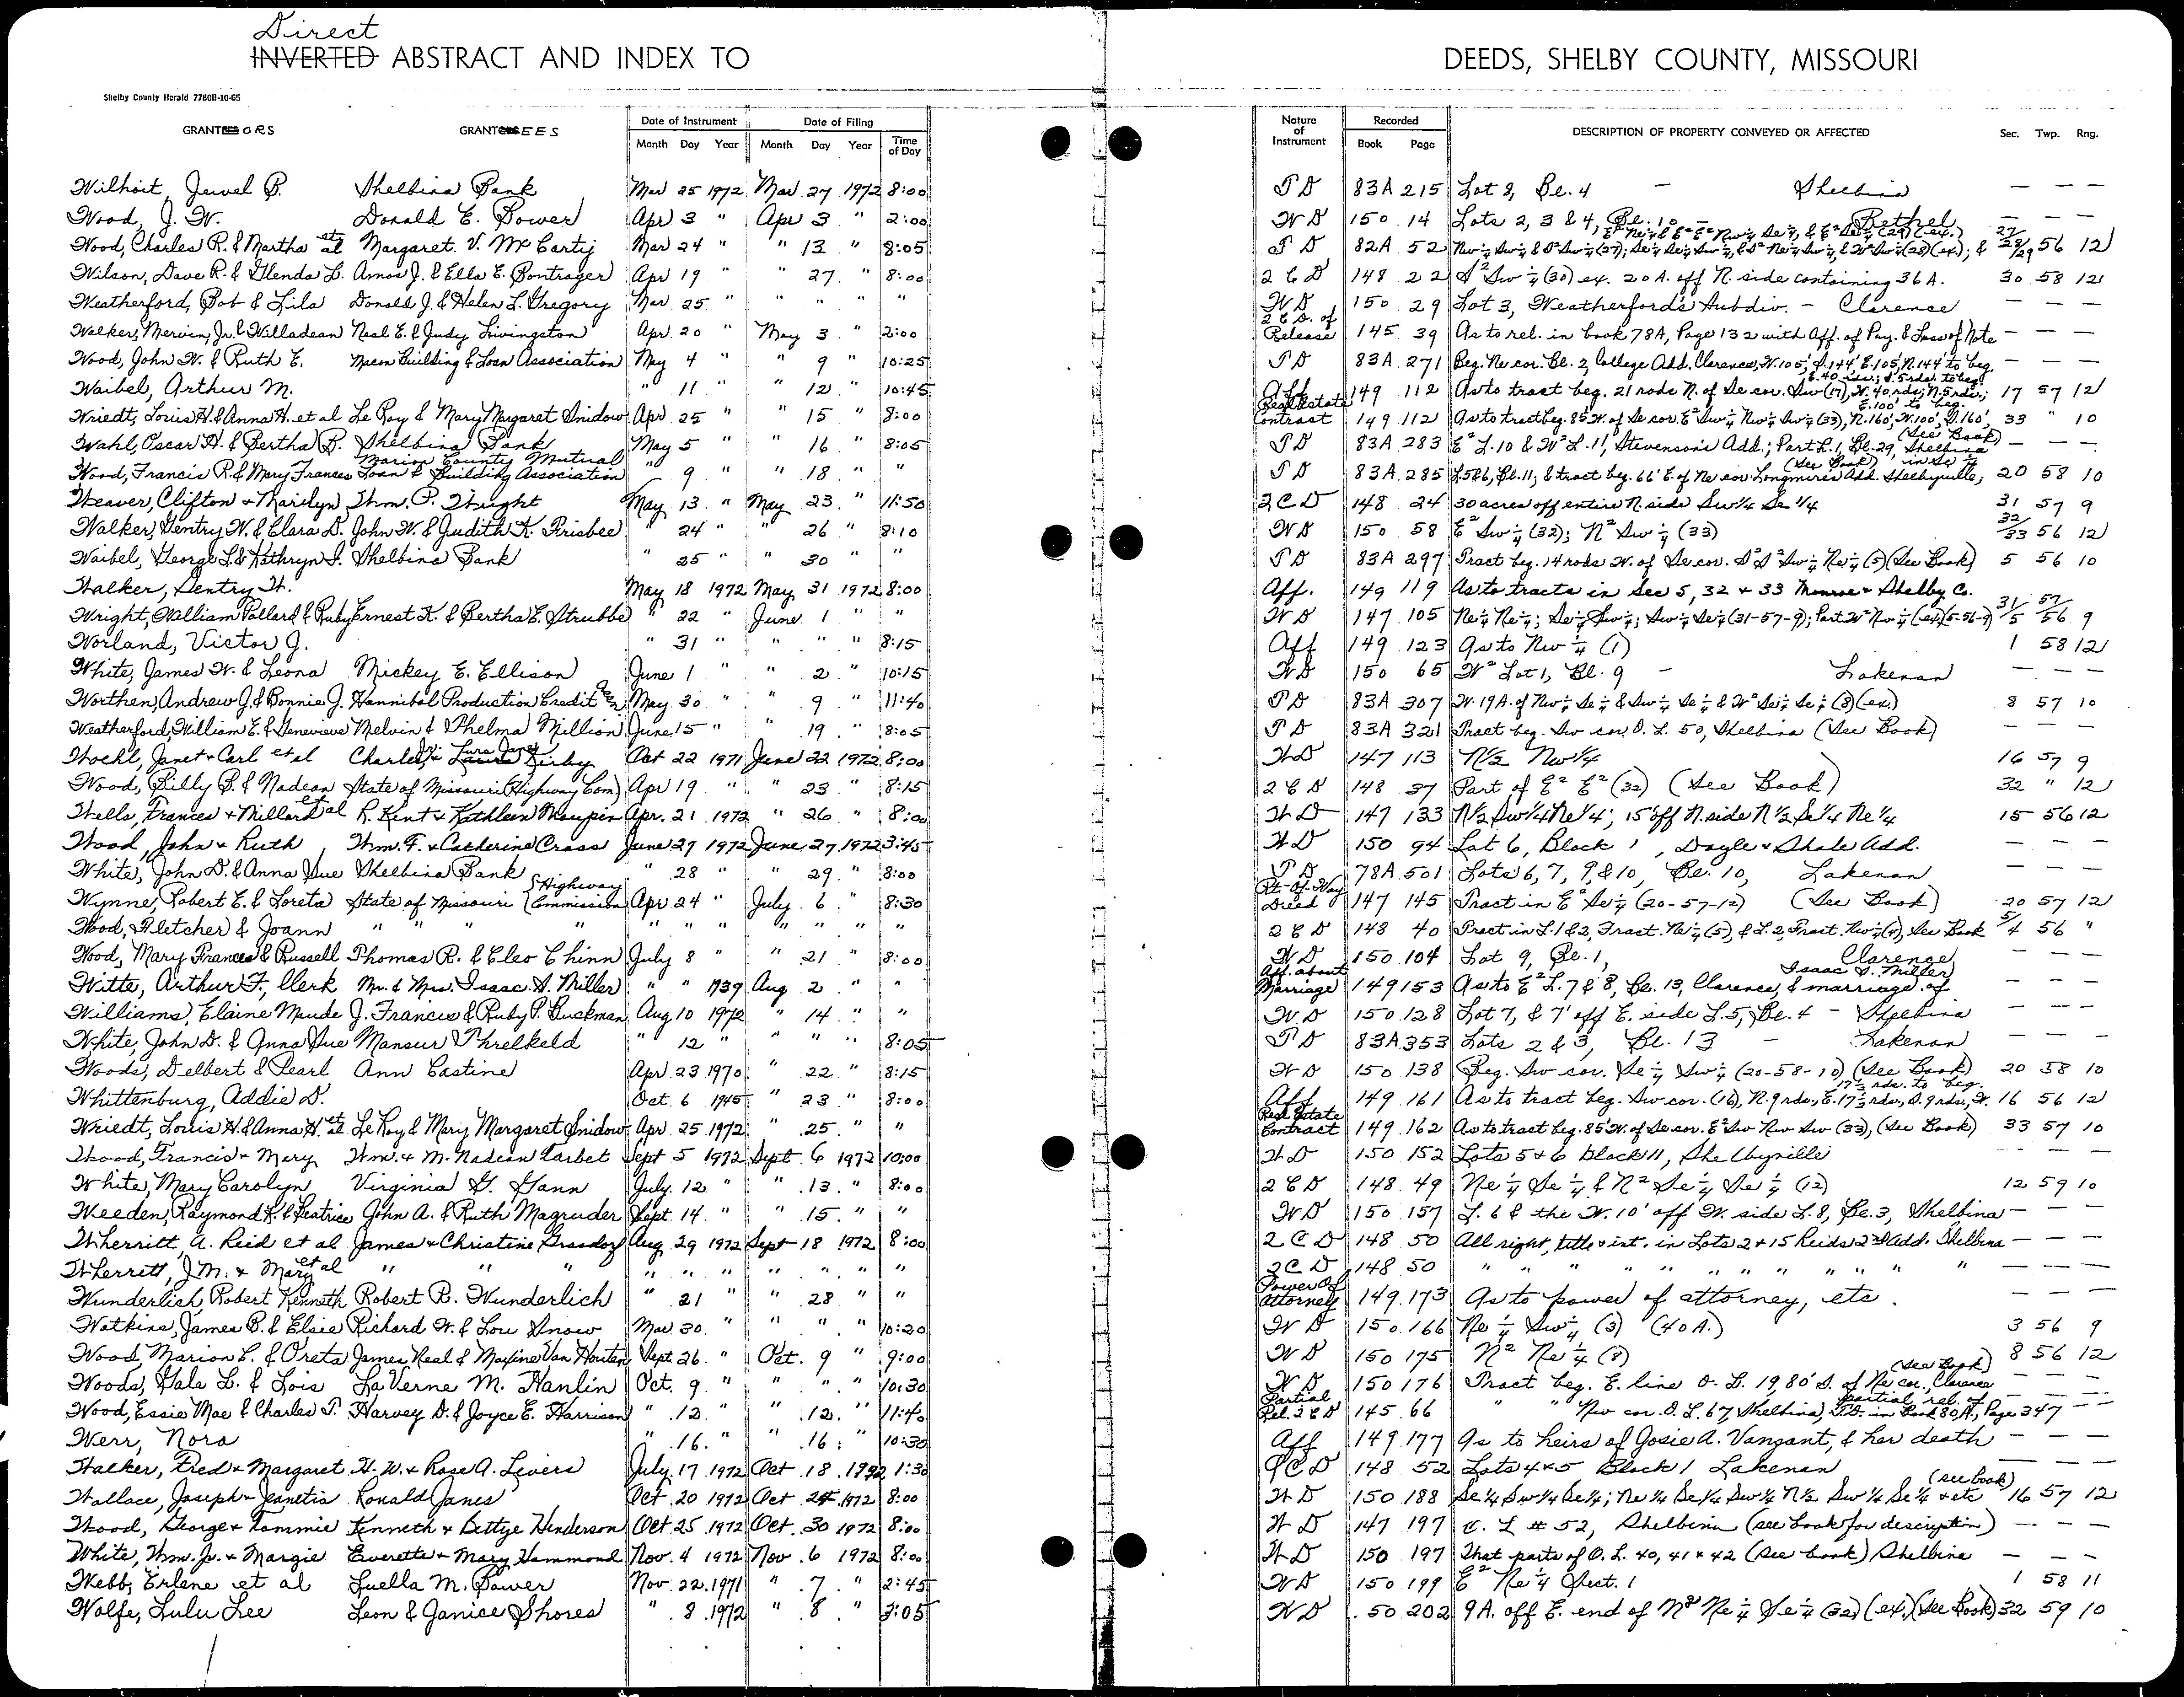 Direct
INVERTED ABSTRACT AND INDEX TO DEEDS, SHELBY COUNTY, MISSOURI
Shelby County Herald 7780B-10-65
GRANTORS GRANTEES Date of Instrument Date of Filing Nature of Instrument Recorded DESCRIPTION OF PROPERTY CONVEYED OR AFFECTED Sec. Twp. Rng.
Month Day Year Month Day Year Time of Day Book Page
Wilhoit, Jewel B. Shelbina Bank Mar 25 1972 Mar 27 1972 8:00 T D 83A 215 Lot 8, Bl. 4 – Shelbina — — —
Wood, J. W. Donald E. Bower Apr 3 " Apr 3 " 2:00 W D 150 14 Lots 2, 3 & 4, Bl. 10 – Bethel — — —
Wood, Charles R. & Martha et al Margaret V. McCarty Mar 24 " " 13 " 8:05 T D 82A 52 27/28/29 56 12
Wilson, Dave R. & Glenda L. Amos J. & Ella E. Bontrager Apr 19 " " 27 " 8:00 2 C D 148 22 S² Sw ¼ (30) ex. 20 A. off N. side containing 36 A. 30 58 12
Weatherford, Bob & Lila Donald J. & Helen L. Gregory Mar 25 " " " " " W D 150 29 Lot 3, Weatherford's Subdiv. – Clarence — — —
Walker, Mervin, Jr. & Willadean Neal E. & Judy Livingston Apr 20 " May 3 " 2:00 2 C D. of Release 145 39 As to rel. in book 78A, Page 132 with Aff. of Pay. & Loss of Note — — —
Wood, John W. & Ruth E. Macon Building & Loan Association May 4 " " 9 " 10:25 T D 83A 271 Beg. Ne cor. Bl. 2, College Add. Clarence, W. 105', S. 144' E. 105', N. 144' to beg. — — —
Waibel, Arthur M. " 11 " " 12 " 10:45 Aff 149 112 As to tract beg. 21 rods N. of Se cor. Sw (17), W. 40 rds; N. 5 rds; E. 40 rds; S. 5 rds to beg. 17 57 12
Wriedt, Louis H. & Anna H. et al Le Roy & Mary Margaret Snidow Apr 25 " " 15 " 8:00 Real Estate Contract 149 112 As to tract beg. 85' W. of Se cor. E² Sw ¼ Nw ¼ Sw ¼ (33), N. 160', W. 100', S. 160', E. 100' to beg. 33 " 10
Wahl, Oscar H. & Bertha B. Shelbina Bank May 5 " " 16 " 8:05 T D 83A 283 E² L. 10 & W² L. 11, Stevenson's Add.; Part L. 1, Bl. 29, Shelbina (See Book) — — —
Wood, Francis R. & Mary Frances Marion County Mutual Loan & Building Association " 9 " " 18 " " T D 83A 285 L. 5 & 6, Bl. 11; & tract beg. 66' E. of Ne cor. Longmires Add. Shelbyville; (See Book) 20 58 10
Weaver, Clifton & Marilyn Wm. P. Wright May 13 " May 23 " 11:50 2 C D 148 24 30 acres off entire N. side Sw¼ Se ¼ 31 57 9
Walker, Gentry W. & Clara D. John W. & Judith K. Frisbee " 24 " " 26 " 8:10 W D 150 58 E² Sw ¼ (32); N² Sw ¼ (33) 32/33 56 12
Waibel, George L. & Kathryn I. Shelbina Bank " 25 " 30 " T D 83A 297 Tract beg. 14 rods W. of Se cor. S² S² Sw ¼ Ne ¼ (5) (See Book) 5 56 10
Walker, Gentry W. May 18 1972 May 31 1972 8:00 Aff. 149 119 As to tracts in Sec 5, 32 & 33 Monroe & Shelby C.
Wright, William Pollard & Ruby Ernest K. & Bertha E. Strubbe " 22 " June 1 " " W D 147 105 Ne ¼ Ne ¼; Se ¼ Sw ¼; Sw ¼ Se ¼ (31-57-9); Part W² Nw ¼ (ex.) (5-56-9) 31/5 57/56 9
Worland, Victor J. " 31 " " " " 8:15 Aff 149 123 As to Nw ¼ (1) 1 58 12
White, James W. & Leona Mickey E. Ellison June 1 " " 2 " 10:15 W D 150 65 W² Lot 1, Bl. 9 – Lakenan — — —
Worthen, Andrew J. & Bonnie J. Hannibal Production Credit May 30 " " 9 " 11:40 T D 83A 307 W. 19 A. of Nw ¼ Se ¼ & Sw ¼ Se ¼ & W² Se ¼ Se ¼ (8) (ex.) 8 57 10
Weatherford, William E. & Genevieve Melvin & Thelma Million June 15 " " 19 " 8:05 T D 83A 321 Tract beg. Sw cor. O. L. 50, Shelbina (See Book) — — —
Woehl, Janet & Carl et al Charles Jr. & Lura Janet Kirby Oct 22 1971 June 22 1972 8:00 W D 147 113 N½ Nw¼ 16 57 9
Wood, Billy B. & Nadean State of Missouri (Highway Com) Apr 19 " " 23 " 8:15 2 C D 148 37 Part of E² E² (32) (See Book) 32 " 12
Wells, Frances & Millard et al R. Kent & Kathleen Maupin Apr. 21 1972 " 26 " 8:00 W D 147 133 N½ Sw¼ Ne¼; 15' off N. side N½ Se¼ Ne¼ 15 56 12
Wood, John & Ruth Wm. F. & Catherine Cross June 27 1972 June 27 1972 3:45 W D 150 94 Lot 6, Block 1, Doyle & Shale Add. — — —
White, John D. & Anna Sue Shelbina Bank " 28 " " 29 " 8:00 T D 78A 501 Lots 6, 7, 9 & 10, Bl. 10, Lakenan — — —
Wynne, Robert E. & Loreta State of Missouri {Highway Commission Apr 24 " July 6 " 8:30 Rt.-Of-Way Deed 147 145 Tract in E² Se ¼ (20-57-12) (See Book) 20 57 12
Wood, Fletcher & Joann " " " " " " " " " " " 2 C D 148 40 Tract in L. 1 & 2, Fract. Ne ¼ (5), & L. 2, Fract. Nw ¼ (4), See Book 5/4 56 "
Wood, Mary Frances & Russell Thomas R. & Cleo Chinn July 8 " " 21 " 8:00 W D 150 104 Lot 9, Bl. 1, Clarence — — —
Witte, Arthur F., Clerk Mr. & Mrs. Isaac S. Miller " " 1939 Aug 2 " " Aff. about Marriage 149 153 As to E² L. 7 & 8, Bl. 13, Clarence, & marriage of Isaac S. Miller — — —
Williams, Elaine Maude J. Francis & Ruby P. Buckman Aug 10 1972 " 14 " " W D 150 128 Lot 7, & 7' off E. side L. 5, Bl. 4 – Shelbina — — —
White, John D. & Anna Sue Mansur Threlkeld " 12 " " " " 8:05 T D 83A 353 Lots 2 & 3, Bl. 13 – Lakenan — — —
Woods, Delbert & Pearl Ann Castine Apr. 23 1970 " 22 " 8:15 W D 150 138 Beg. Sw cor. Se ¼ Sw ¼ (20-58-10) (See Book) 20 58 10
Whittenburg, Addie D. Oct. 6 1945 " 23 " 8:00 Aff 149 161 As to tract beg. Sw cor. (16), N. 9 rds., E. 17½ rds., S. 9 rds., W. 17½ rds. to beg. 16 56 12
Wriedt, Louis H. & Anna H. et al Le Roy & Mary Margaret Snidow Apr. 25 1972 " 25 " " Real Estate Contract 149 162 As to tract beg. 85' W. of Se cor. E² Sw Nw Sw (33), (See Book) 33 57 10
Wood, Francis & Mery Wm. & M. Nadean Tarbet Sept 5 1972 Sept. 6 1972 10:00 W D 150 152 Lots 5 & 6 block 11, Shelbyville — — —
White, Mary Carolyn Virginia G. Gann July 12 " " 13 " 8:00 2 C D 148 49 Ne ¼ Se ¼ & N² Se ¼ Se ¼ (12) 12 59 10
Weeden, Raymond K. & Beatrice John A. & Ruth Magruder Sept. 14 " " 15 " " W D 150 157 L. 6 & the W. 10' off W. side L. 8, Bl. 3, Shelbina — — —
Wherritt, A. Reid et al James & Christine Grasdorf Aug 29 1972 Sept 18 1972 8:00 2 C D 148 50 All right, title & int. in Lots 2 & 15 Reids 2nd Add. Shelbina — — —
Wherrett, J. M. & Mary et al " " " " " " " " " " 2 C D 148 50 " " " " " " " " " " — — —
Wunderlich, Robert Kenneth Robert B. Wunderlich " 21 " " 28 " " Power Of Attorney 149 173 As to power of attorney, etc. — — —
Watkins, James B. & Elsie Richard W. & Lou Snow Mar 30 " " " " 10:20 W D 150 166 Ne ¼ Sw ¼ (3) (40 A.) 3 56 9
Wood, Marion C. & Oreta James Neal & Maxine Van Houten Sept. 26 " Oct. 9 " 9:00 W D 150 175 N² Ne ¼ (8) 8 56 12
Woods, Gale L. & Lois LaVerne M. Hanlin Oct. 9 " " " " 10:30 W D 150 176 Tract beg. E. line O. L. 19, 80' S. of Ne cor., Clarence (See Book) — — —
Wood, Essie Mae & Charles T. Harvey D. & Joyce E. Harrison " 12 " " 12 " 11:40 Partial Rel. 2 C D 145 66 " " Nw cor. O. L. 67, Shelbina, partial rel. of T.D. in Book 80A, Page 347 — —
Werr, Nora " 16 " " 16 " 10:30 Aff 149 177 As to heirs of Josie A. Vanzant, & her death — — —
Walker, Fred & Margaret H. W. & Rose A. Livers July 17 1972 Oct 18 1972 1:30 Q C D 148 52 Lots 4 & 5 Block 1 Lakenan — — —
Wallace, Joseph & Jeanetia Ronald Janes Oct 20 1972 Oct 24 1972 8:00 W D 150 188 Se ¼ Sw ¼ Se ¼; Ne ¼ Se ¼ Sw ¼ N½ Sw ¼ Se ¼ & etc (see book) 16 57 12
Wood, George & Tommie Kenneth & Bettye Henderson Oct. 25 1972 Oct. 30 1972 8:00 W D 147 197 O. L # 52, Shelbina (see book for description) — — —
White, Wm. Jr. & Margie Everette & Mary Hammond Nov. 4 1972 Nov. 6 1972 8:00 W D 150 197 That parts of O. L. 40, 41 & 42 (See book) Shelbina — — —
Webb, Erlene et al Luella M. Bower Nov. 22 1971 " 7 " 2:45 W D 150 199 E² Ne ¼ Sect. 1 1 58 11
Wolfe, Lulu Lee Leon & Janice Shores " 8 1972 " 8 " 3:05 W D 50 202 9 A. off E. end of N² Ne ¼ Se ¼ (32) (ex.) (See Book) 32 59 10